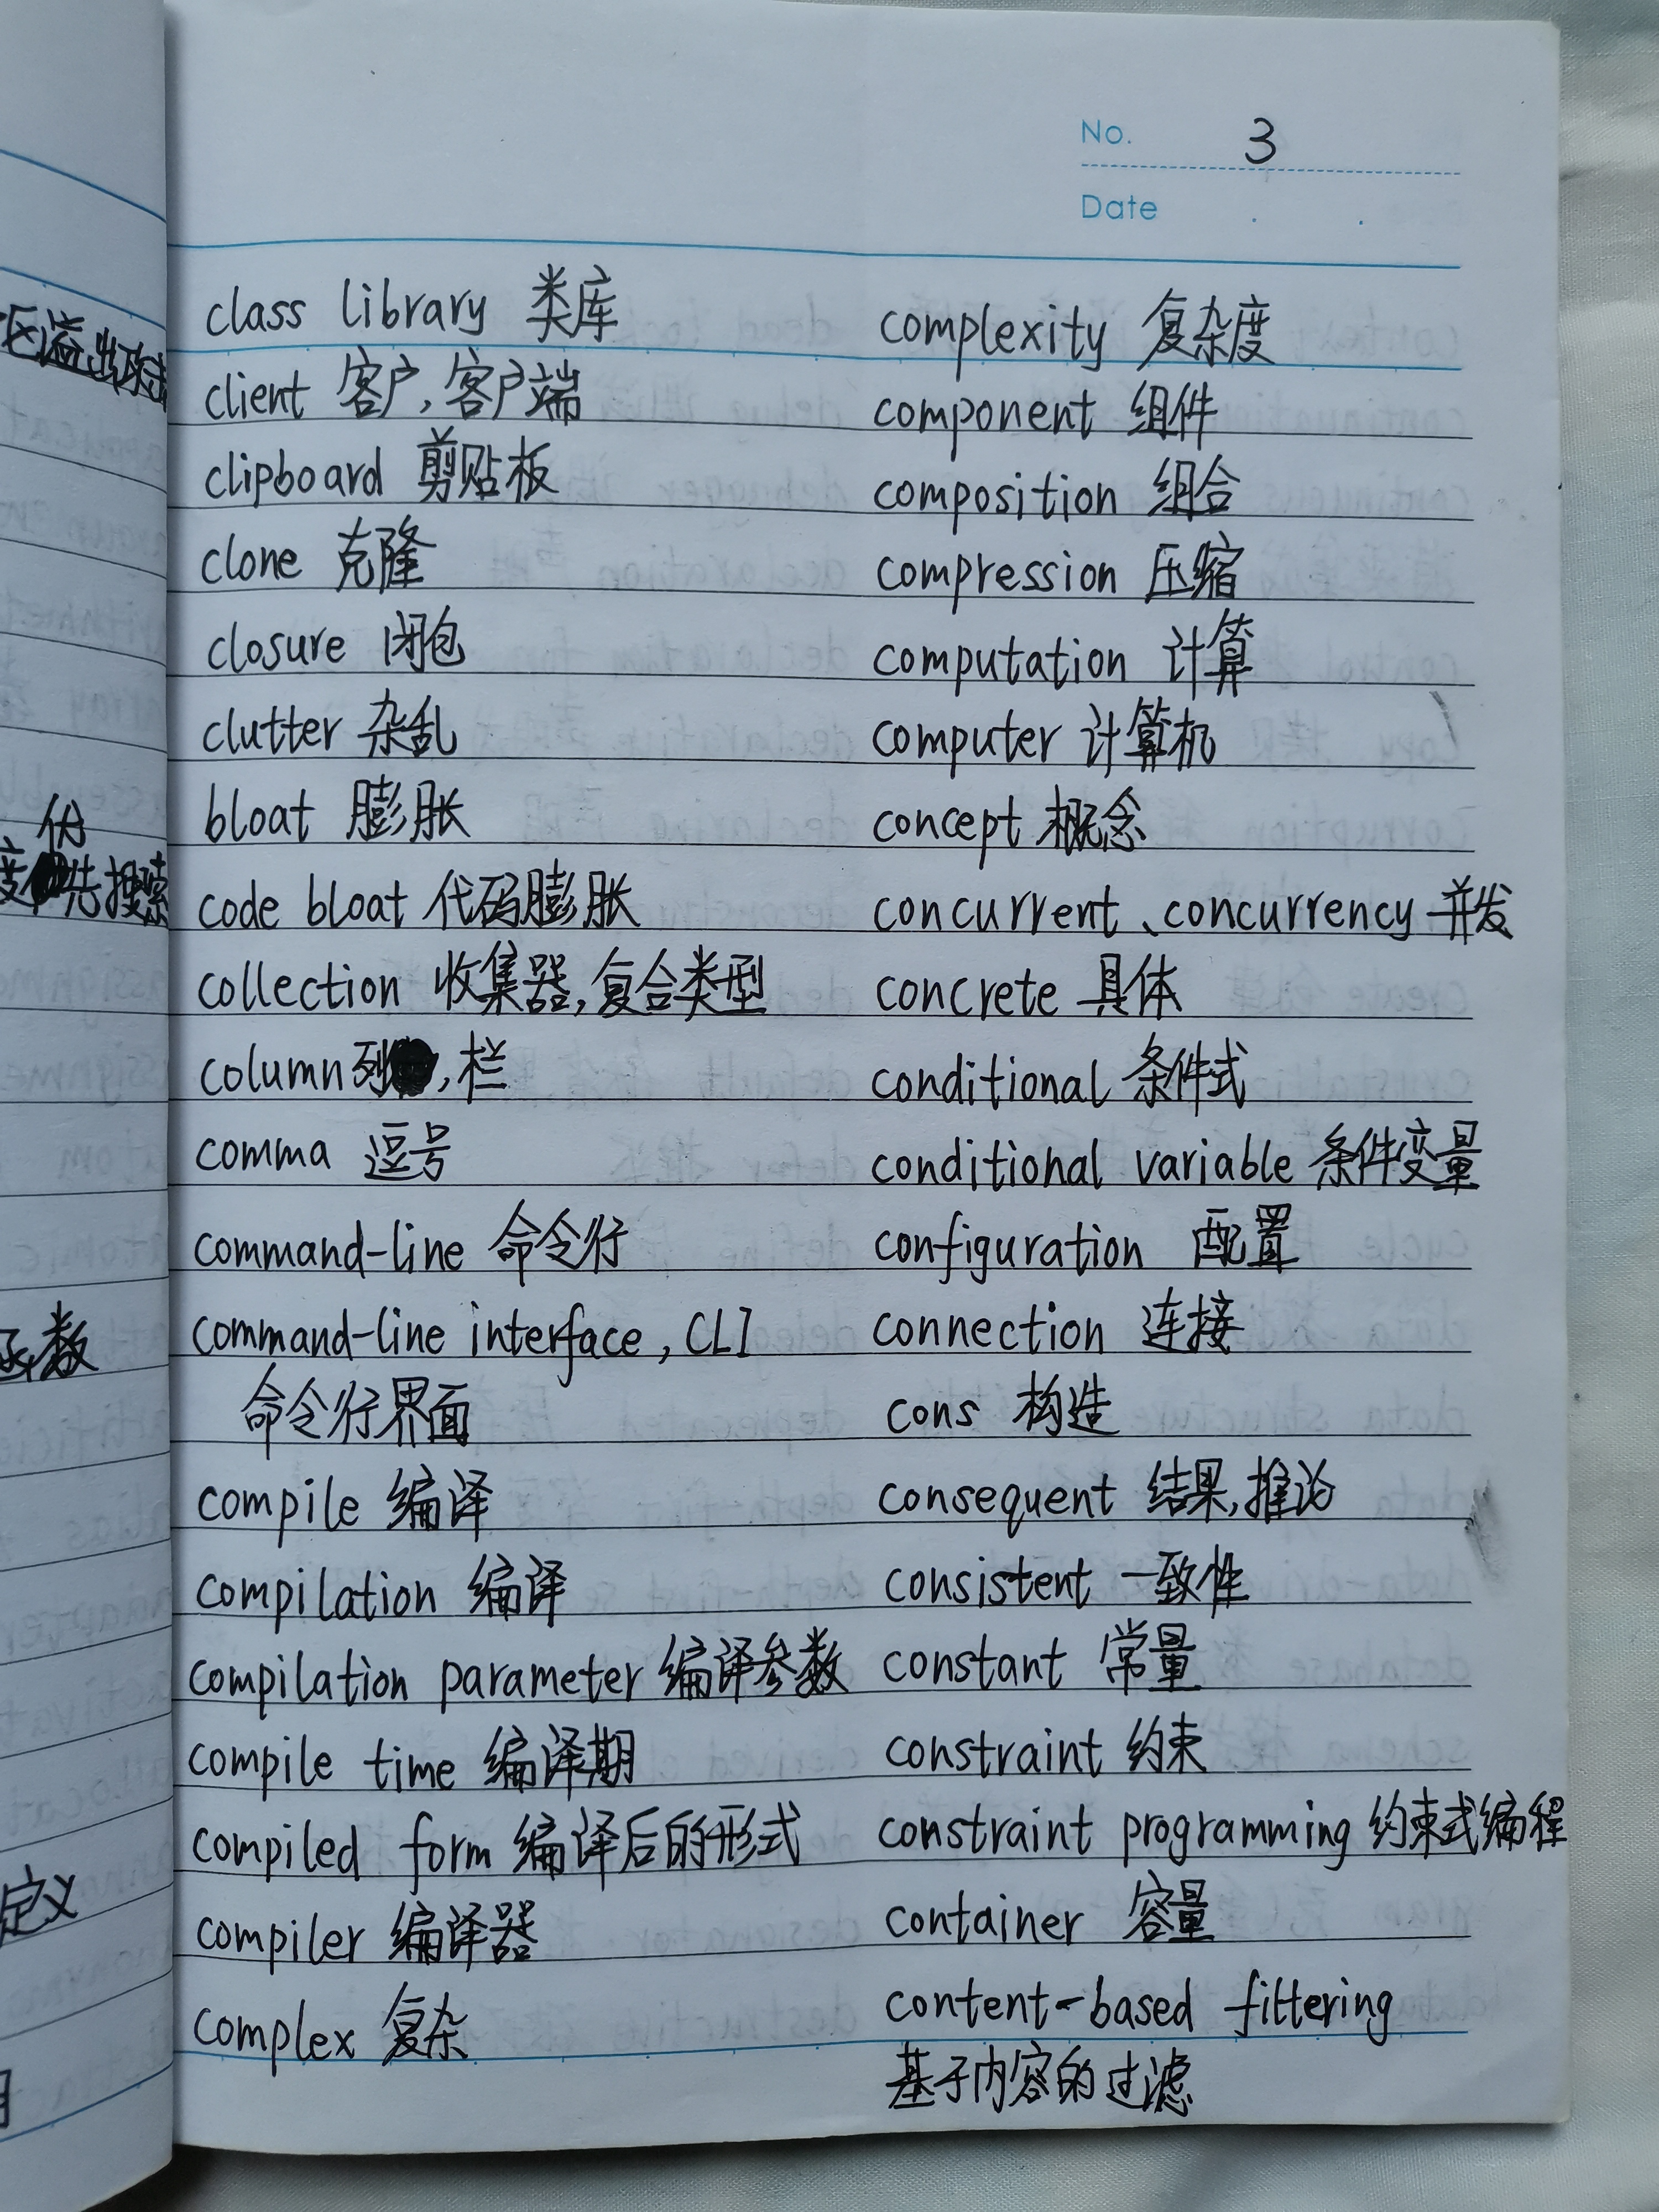 No. 3
Date
class library 类库
client 客户,客户端
clipboard 剪贴板
clone 克隆
closure 闭包
clutter 杂乱
bloat 膨胀
code bloat 代码膨胀
collection 收集器,复合类型
column 列,栏
comma 逗号
command-line 命令行
command-line interface, CLI
命令行界面
compile 编译
compilation 编译
compilation parameter 编译参数
compile time 编译期
compiled form 编译后的形式
compiler 编译器
complex 复杂
complexity 复杂度
component 组件
composition 组合
compression 压缩
computation 计算
computer 计算机
concept 概念
concurrent、concurrency 并发
concrete 具体
conditional 条件式
conditional variable 条件变量
configuration 配置
connection 连接
cons 构造
consequent 结果,推论
consistent 一致性
constant 常量
constraint 约束
constraint programming 约束式编程
container 容量
content-based filtering
基于内容的过滤
区溢出攻击
优
度先搜索
函数
定义